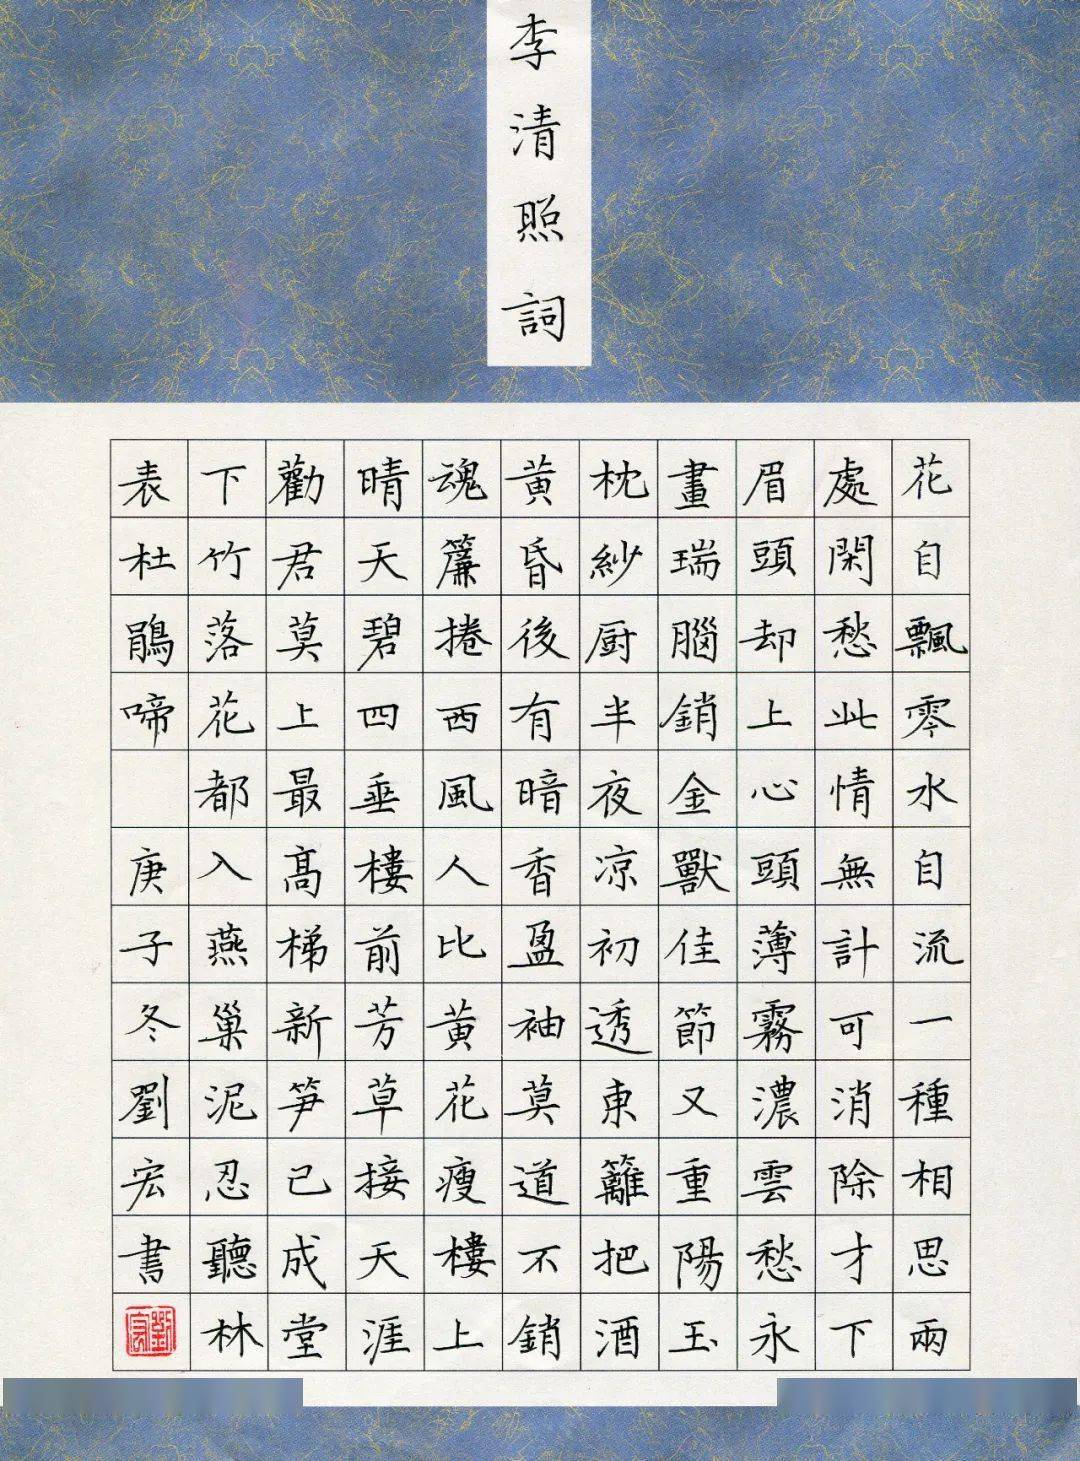 李清照詞
花自飄零水自流一種相思兩
處閑愁此情無計可消除才下
眉頭却上心頭薄霧濃雲愁永
晝瑞腦銷金獸佳節又重陽玉
枕紗厨半夜凉初透東籬把酒
黃昏後有暗香盈袖莫道不銷
魂簾捲西風人比黃花瘦樓上
晴天碧四垂樓前芳草接天涯
勸君莫上最高梯新笋已成堂
下竹落花都入燕巢泥忍聽林
表杜鵑啼 庚子冬劉宏書
劉宏